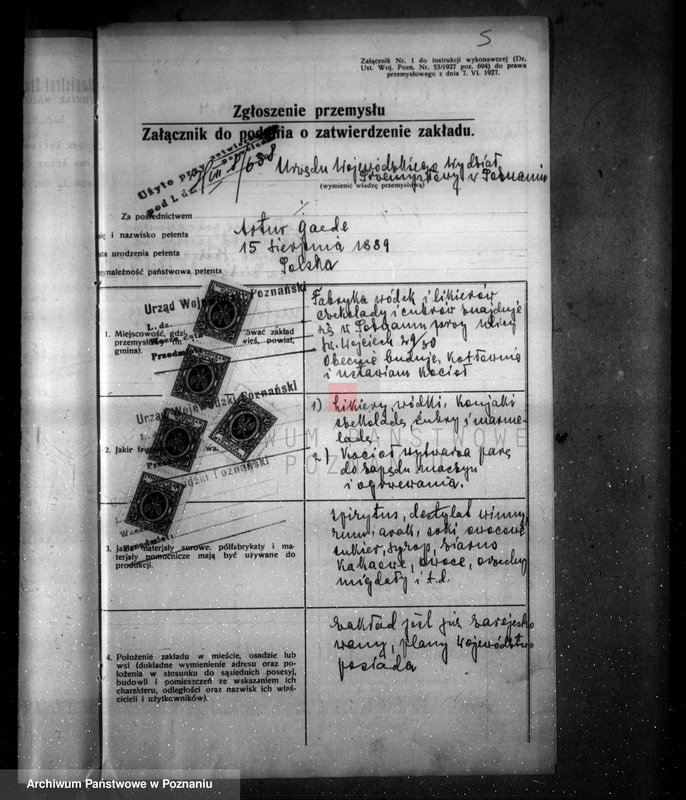 5
Załącznik Nr. 1 do instrukcji wykonawczej (Dz.
Ust. Woj. Pozn. Nr. 53/1927 poz. 694) do prawa
przemysłowego z dnia 7. VI. 1927.
Zgłoszenie przemysłu
Załącznik do podania o zatwierdzenie zakładu.
Użyto przy
pod l. dz.
Urzędu Wojewódzkiego Wydział
Przemysłowy w Poznaniu
(wymienić władzę przemysłową)
Za pośrednictwem
ię i nazwisko petenta Artur Gaede
ata urodzenia petenta 15 Sierpnia 1889
zynależność państwowa petenta Polska
Urząd Wojewódzki Poznański
L. dz.
1. Miejscowość, gdzie
przemysł
gmina).
Przedm
Fabryka wódek i likierów
czekolady i cukrów znajduje
się w Poznaniu przy ulicy
św. Wojciech 29/30
Obecnie buduję Kotłownię
i ustawiam Kocioł
Urząd Wojewódzki Poznański
2. Jakie
1) Likiery, wódki, Konjaki
czekoladę, cukry i marme-
ladę
2) Kocioł wytwarza parę
do zapędu maszyn
i ogrzewania.
ARCHIWUM PAŃSTWOWE
POZNAŃ
3. Jakie materjały surowe, półfabrykaty i ma-
terjały pomocnicze mają być używane do
produkcji.
Spirytus, destylat winny,
rum, arak, soki owocowe
cukier, syrop, ziarno
Kakaowe, owoce, orzechy
migdały i t.d.
4. Położenie zakładu w mieście, osadzie lub
wsi (dokładne wymienienie adresu oraz po-
łożenia w stosunku do sąsiednich posesyj,
budowli i pomieszczeń ze wskazaniem ich
charakteru, odległości oraz nazwisk ich właś-
cicieli i użytkowników).
Zakład jest już zarejestro
wany, plany Województwo
posiada
Archiwum Państwowe w Poznaniu